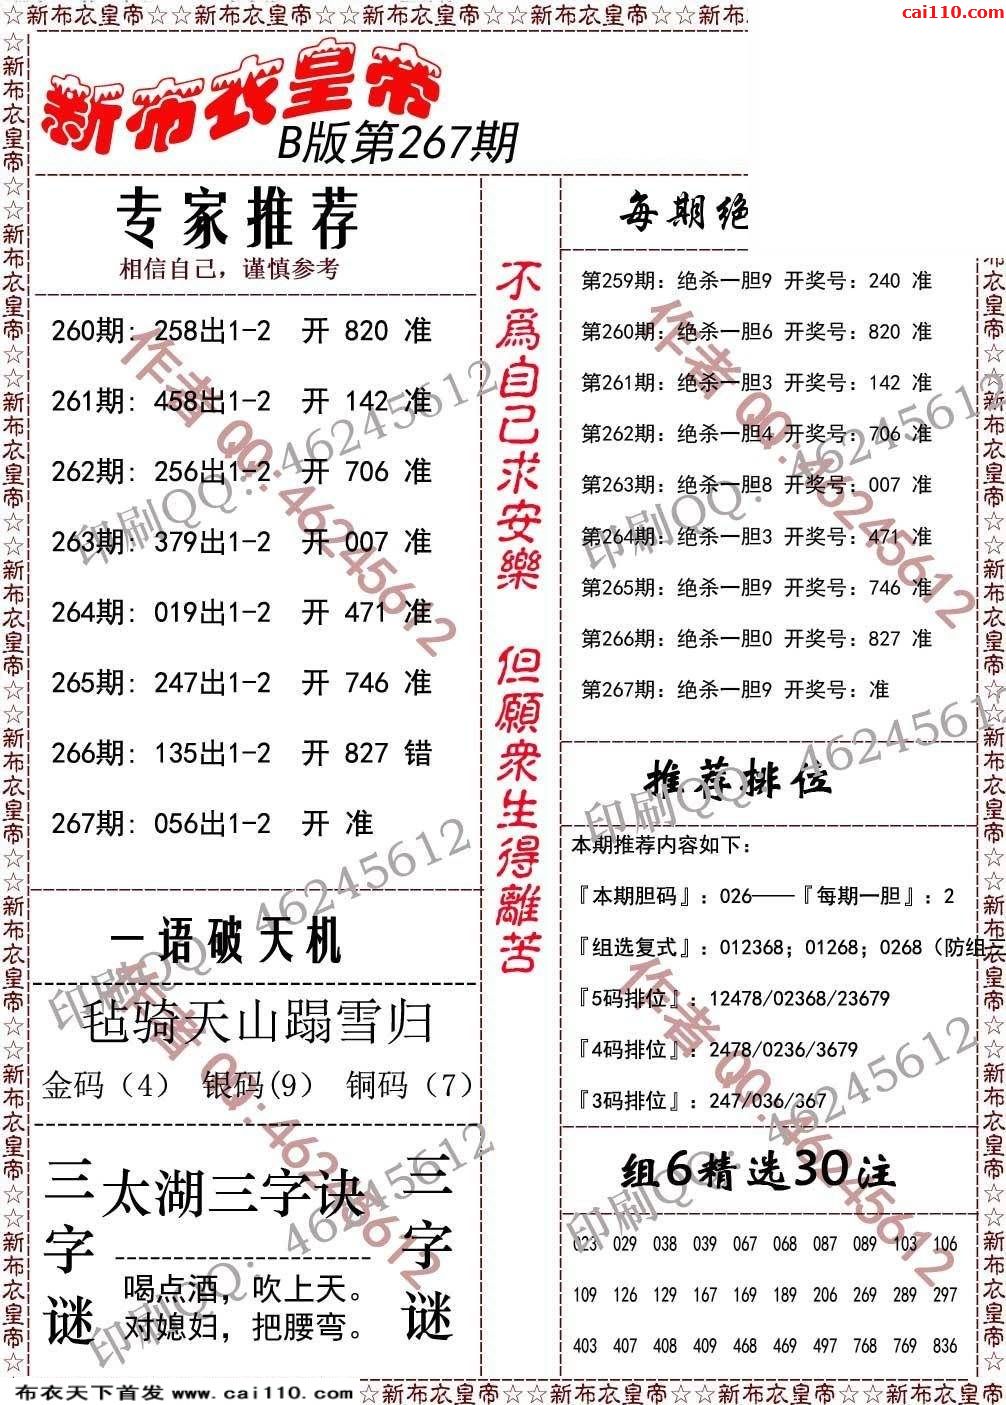 ☆新布衣皇帝☆☆新布衣皇帝☆☆新布衣皇帝☆☆新布衣皇帝☆☆新布
cai110.com
新布衣皇帝
B版第267期
专家推荐
相信自己，谨慎参考
260期: 258出1-2 开 820 准
261期: 458出1-2 开 142 准
262期: 256出1-2 开 706 准
263期: 379出1-2 开 007 准
264期: 019出1-2 开 471 准
265期: 247出1-2 开 746 准
266期: 135出1-2 开 827 错
267期: 056出1-2 开 准
一语破天机
毡骑天山蹋雪归
金码（4） 银码(9） 铜码（7）
三字谜
太湖三字诀
喝点酒，吹上天。
对媳妇，把腰弯。
三字谜
不爲自己求安樂 但願衆生得離苦
每期绝
第259期: 绝杀一胆9 开奖号: 240 准
第260期: 绝杀一胆6 开奖号: 820 准
第261期: 绝杀一胆3 开奖号: 142 准
第262期: 绝杀一胆4 开奖号: 706 准
第263期: 绝杀一胆8 开奖号: 007 准
第264期: 绝杀一胆3 开奖号: 471 准
第265期: 绝杀一胆9 开奖号: 746 准
第266期: 绝杀一胆0 开奖号: 827 准
第267期: 绝杀一胆9 开奖号: 准
推荐排位
本期推荐内容如下:
『本期胆码』: 026——『每期一胆』: 2
『组选复式』: 012368; 01268; 0268（防组三
『5码排位』: 12478/02368/23679
『4码排位』: 2478/0236/3679
『3码排位』: 247/036/367
组6精选30注
023 029 038 039 067 068 087 089 103 106
109 126 129 167 169 189 206 269 289 297
403 407 408 409 468 469 497 768 769 836
作者QQ:46245612
印刷QQ: 46245612
布衣天下首发 www.cai110.com
☆新布衣皇帝☆☆新布衣皇帝☆☆新布衣皇帝☆☆新布衣皇帝☆